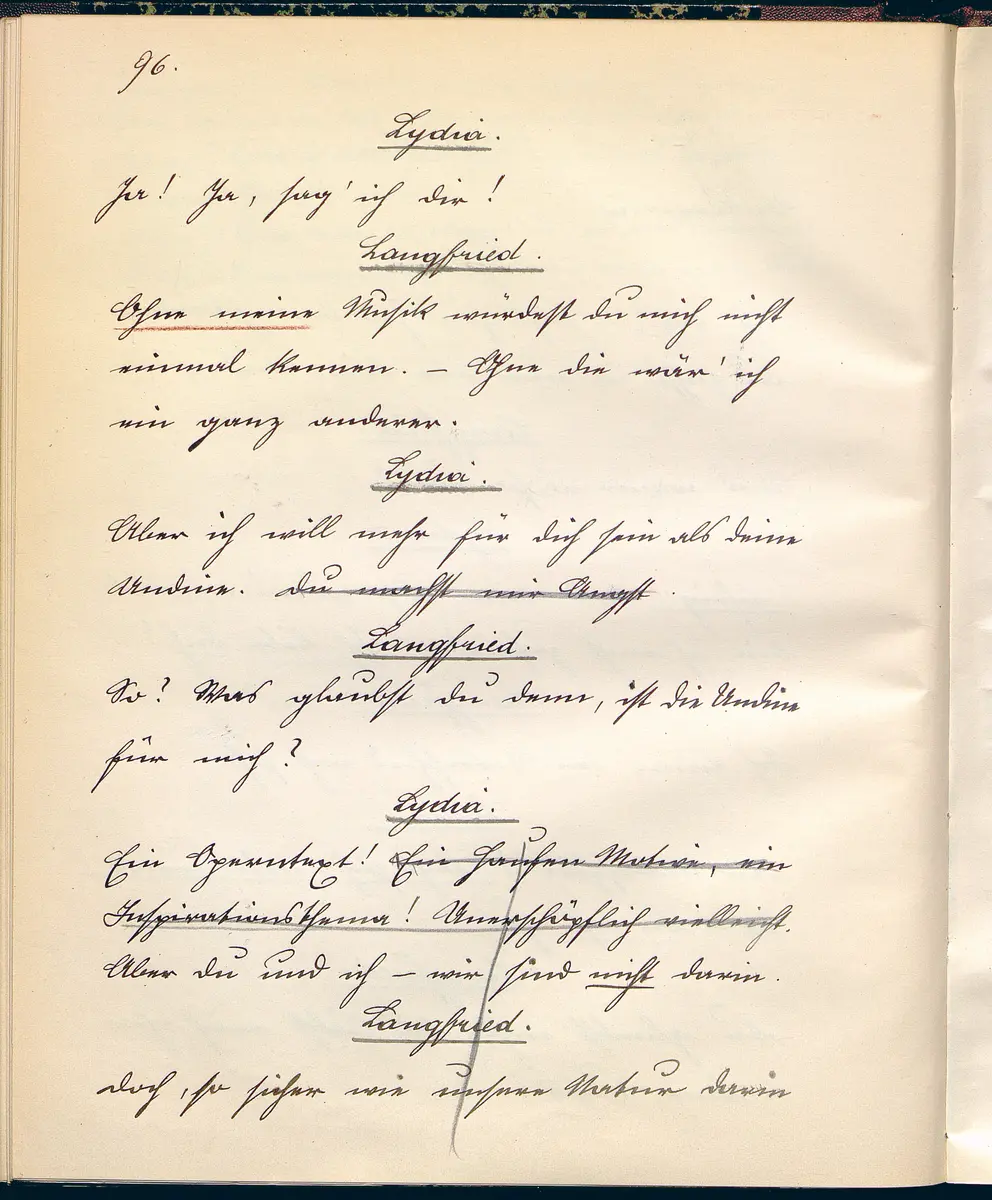 96.
Lydia.
Ja! Ja, sag' ich dir!
Langfried.
Ohne meine Musik würdest du mich nicht
einmal kennen. – Ohne die wär' ich
ein ganz anderer.
Lydia.
Aber ich will mehr für dich sein als deine
Undine. Du machst mir Angst.
Langfried.
So? Was glaubst du denn, ist die Undine
für mich?
Lydia.
Ein Operntext! Ein Haufen Motive, ein
Inspirationsthema! Unerschöpflich vielleicht.
Aber du und ich – wir sind nicht darin.
Langfried.
Doch, so sicher wie unsere Natur darin